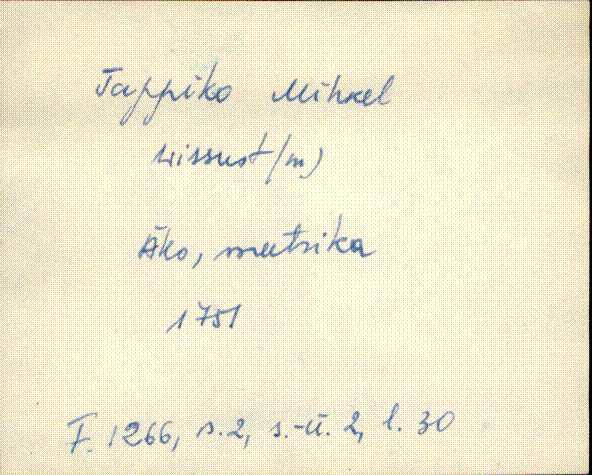 Tappiko Mihkel
Wissust (m)
Äko, meetrika
1751
F. 1266, n. 2, s.-ü. 2, l. 30